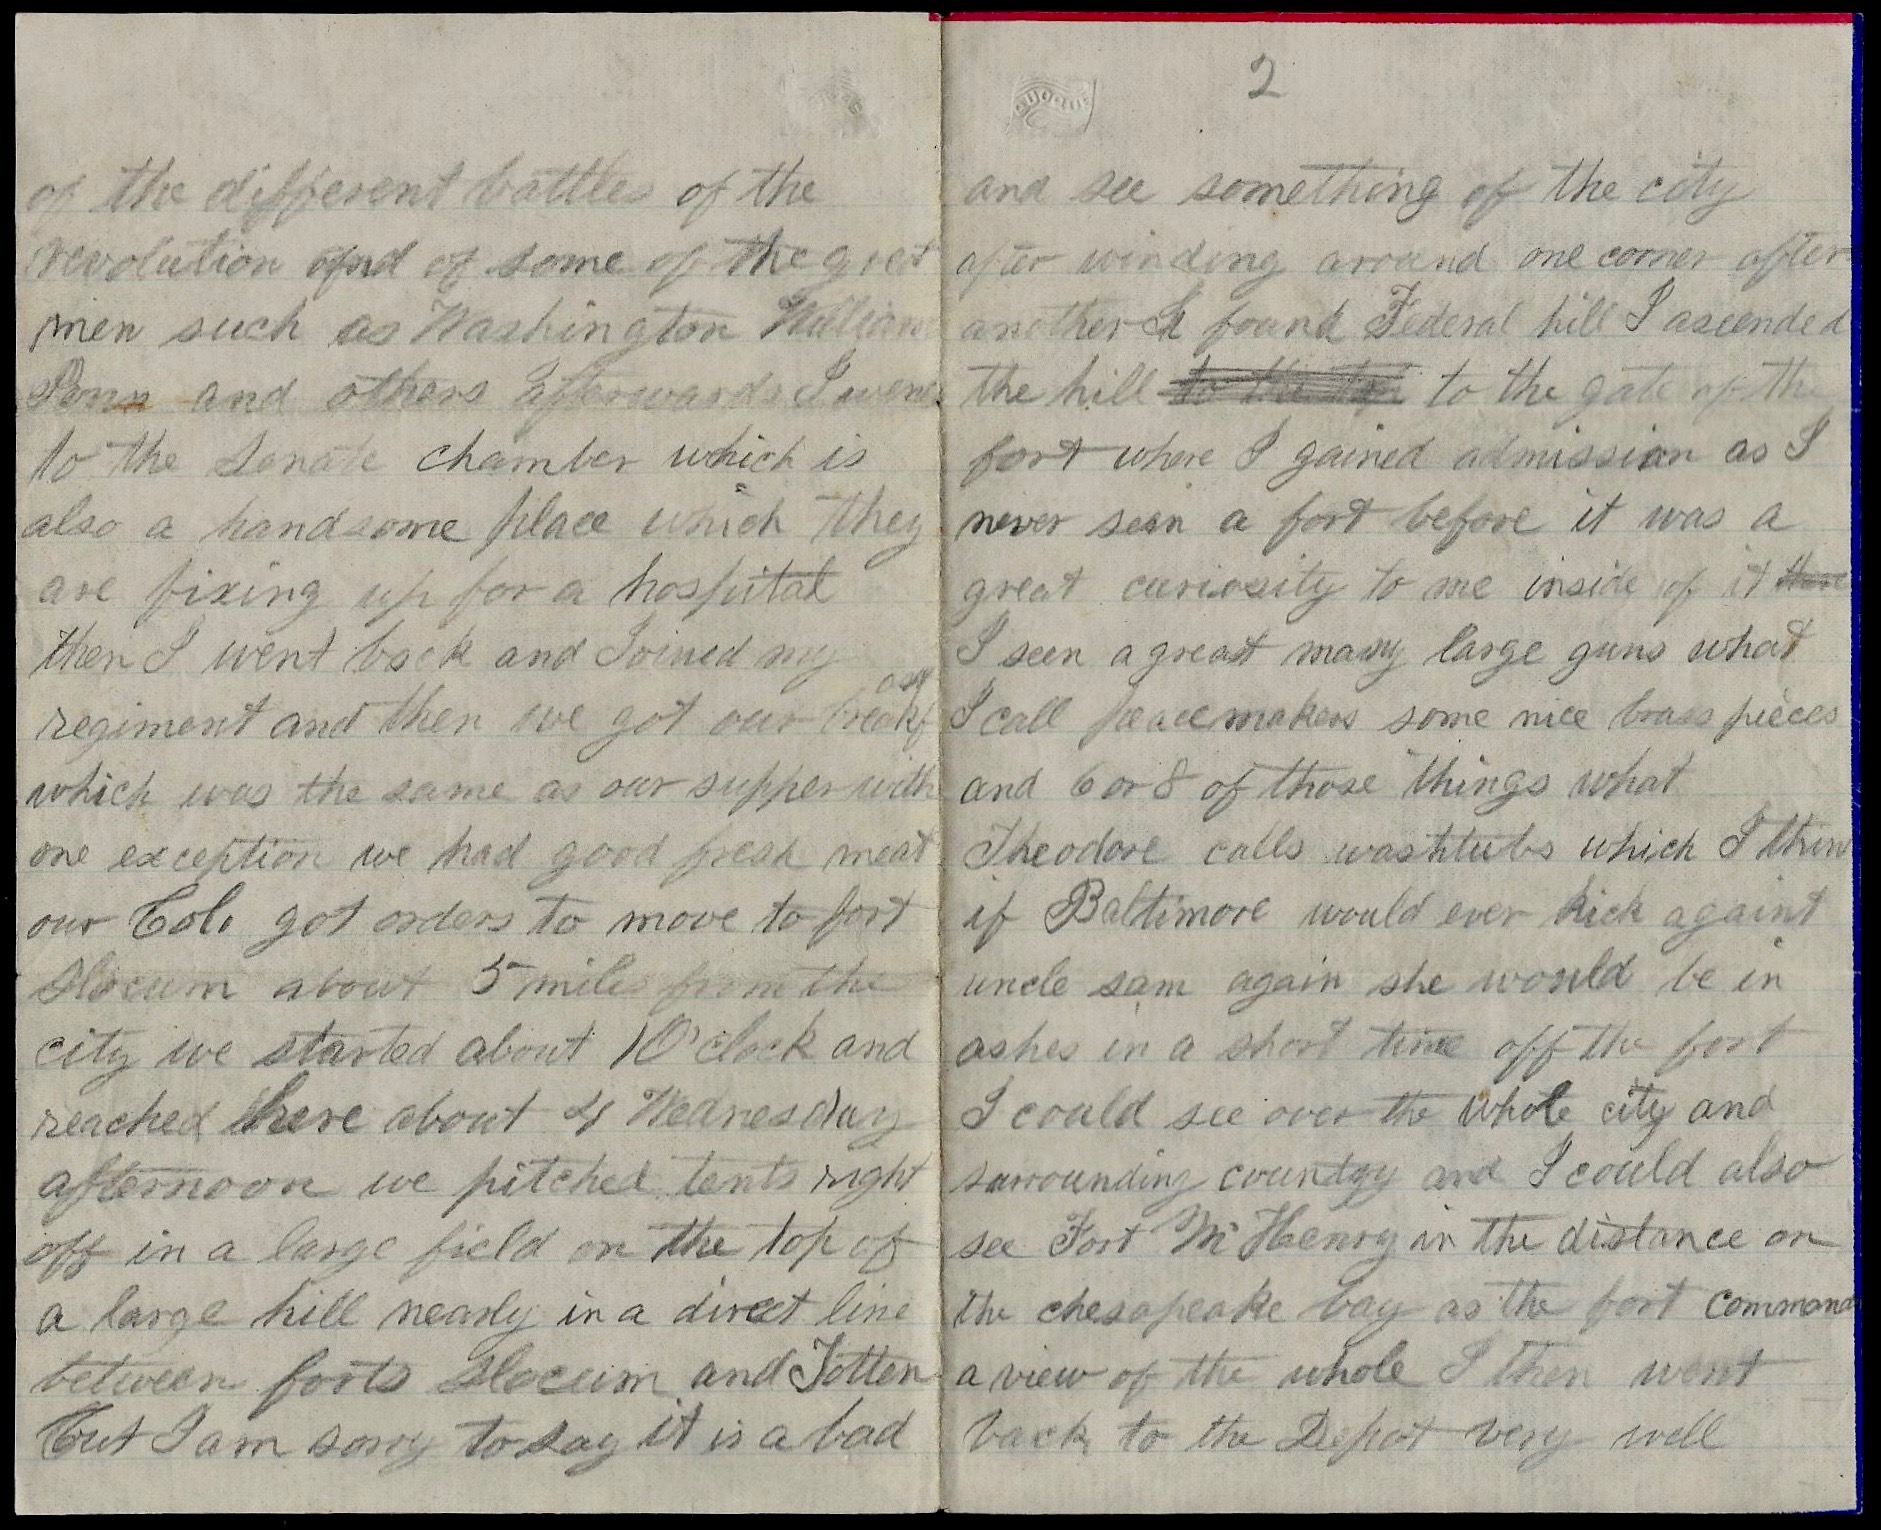 of the different battles of the
revolution and of some of the great
men such as Washington William
Penn and others afterwards I went
to the Senate chamber which is
also a handsome place which they
are fixing up for a hospital
then I went back and Joined my
regiment and then we got our breakfast
which was the same as our supper with
one exception we had good fresh meat
our Col. got orders to move to fort
Slocum about 5 miles from the
city we started about 10'clock and
reached here about 4 Wednesday
afternoon we pitched tents right
off in a large field on the top of
a large hill nearly in a direct line
between forts Slocum and Totten
But I am sorry to say it is a bad
2
and see something of the city
after winding around one corner after
another I found Federal hill I ascended
the hill to the top to the gate of the
fort where I gained admission as I
never seen a fort before it was a
great curiosity to me inside of it there
I seen a great many large guns what
I call peacemakers some nice brass pieces
and 6 or 8 of those things what
Theodore calls washtubs which I think
if Baltimore would ever kick againt
uncle sam again she would be in
ashes in a short time off the fort
I could see over the whole city and
surrounding country and I could also
see Fort Mc Henry in the distance on
the chesapeake bay as the fort commands
a view of the whole I then went
back to the Depot very well